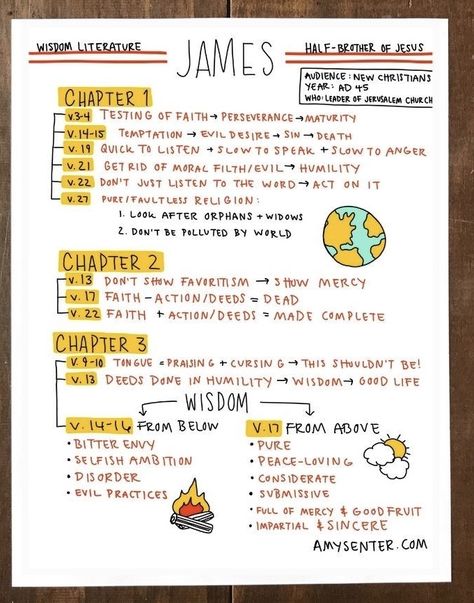 WISDOM LITERATURE
JAMES
HALF-BROTHER OF JESUS
AUDIENCE: NEW CHRISTIANS
YEAR: AD 45
WHO: LEADER OF JERUSALEM CHURCH
CHAPTER 1
V.3-4 TESTING OF FAITH → PERSEVERANCE → MATURITY
V.14-15 TEMPTATION → EVIL DESIRE → SIN → DEATH
V. 19 QUICK TO LISTEN + SLOW TO SPEAK + SLOW TO ANGER
V. 21 GET RID OF MORAL FILTH/EVIL → HUMILITY
V. 22 DON'T JUST LISTEN TO THE WORD → ACT ON IT
V. 27 PURE/FAULTLESS RELIGION:
1. LOOK AFTER ORPHANS + WIDOWS
2. DON'T BE POLLUTED BY WORLD
CHAPTER 2
V. 13 DON'T SHOW FAVORITISM → SHOW MERCY
V. 17 FAITH - ACTION/DEEDS = DEAD
V. 22 FAITH + ACTION/DEEDS = MADE COMPLETE
CHAPTER 3
V. 9-10 TONGUE = PRAISING + CURSING → THIS SHOULDN'T BE!
V. 13 DEEDS DONE IN HUMILITY → WISDOM → GOOD LIFE
WISDOM
V. 14-16 FROM BELOW
• BITTER ENVY
• SELFISH AMBITION
• DISORDER
• EVIL PRACTICES
V. 17 FROM ABOVE
• PURE
• PEACE-LOVING
• CONSIDERATE
• SUBMISSIVE
• FULL OF MERCY & GOOD FRUIT
• IMPARTIAL & SINCERE
AMYSENTER.COM